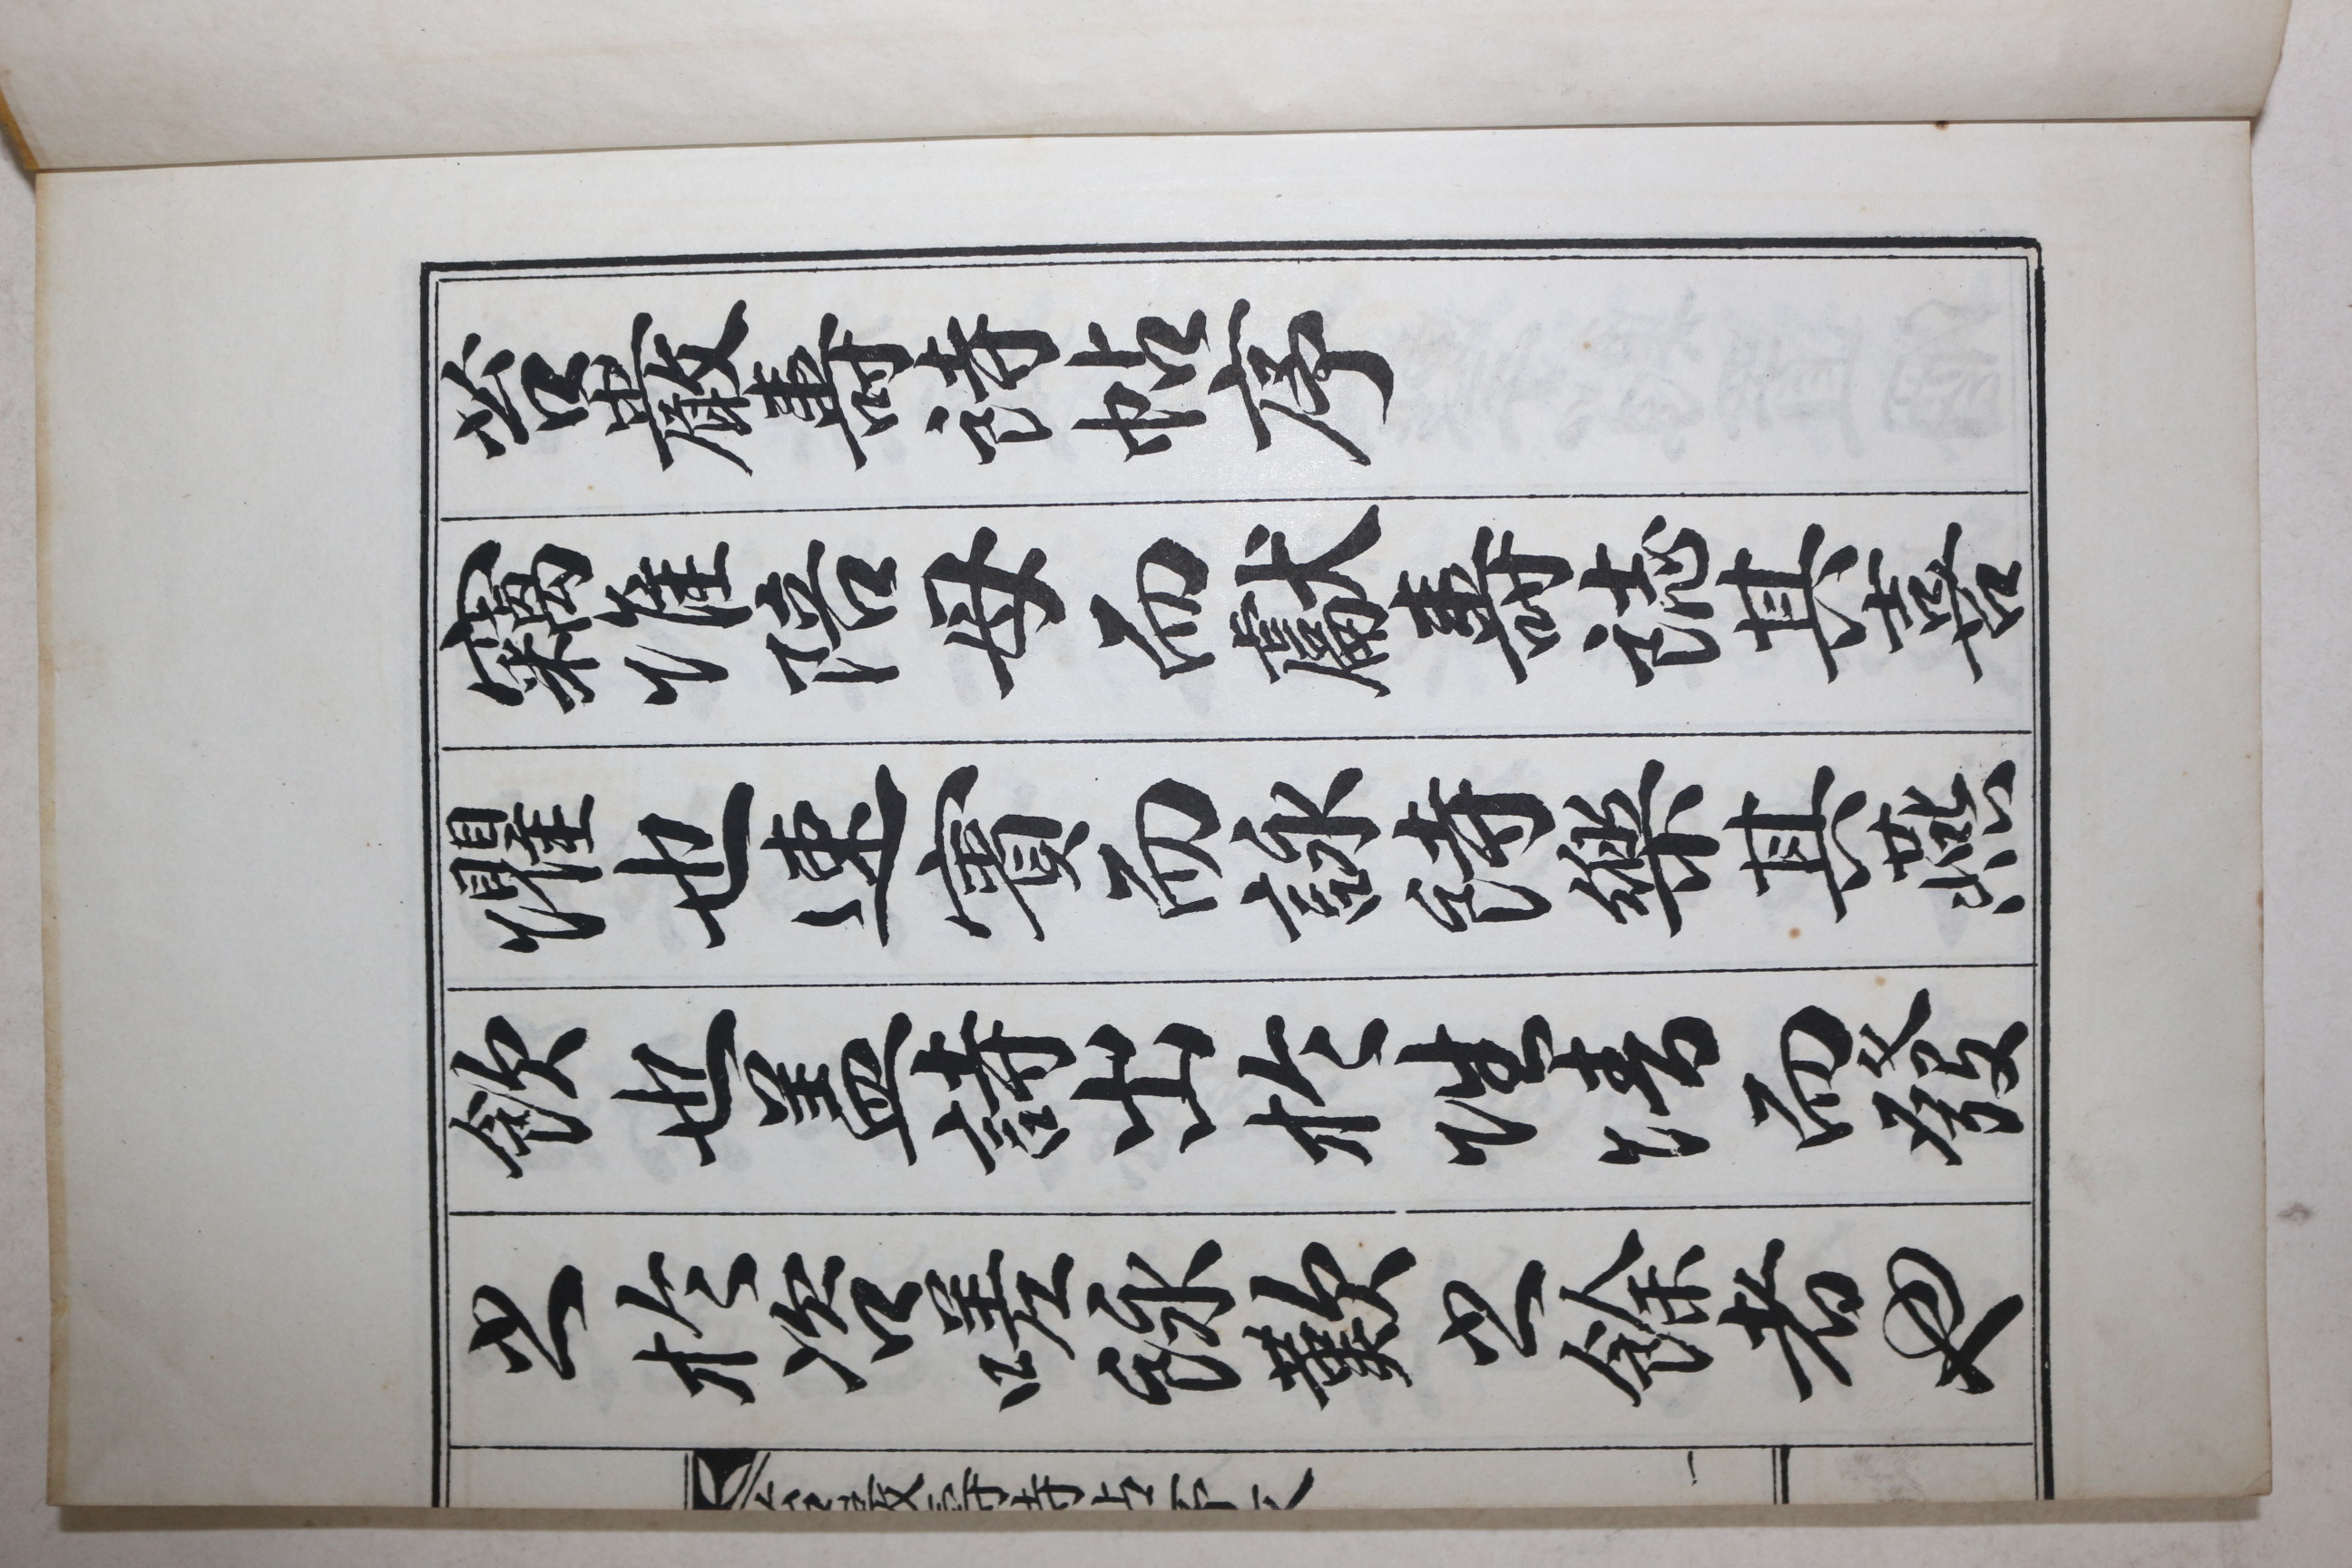 苔巖壽詩帖序
竊惟陪母而獻壽誌其喜
懼也速賓而詠詩樂其燕
飲也盖詩出於性情而發
之於咨嗟詠歎之餘者也
一